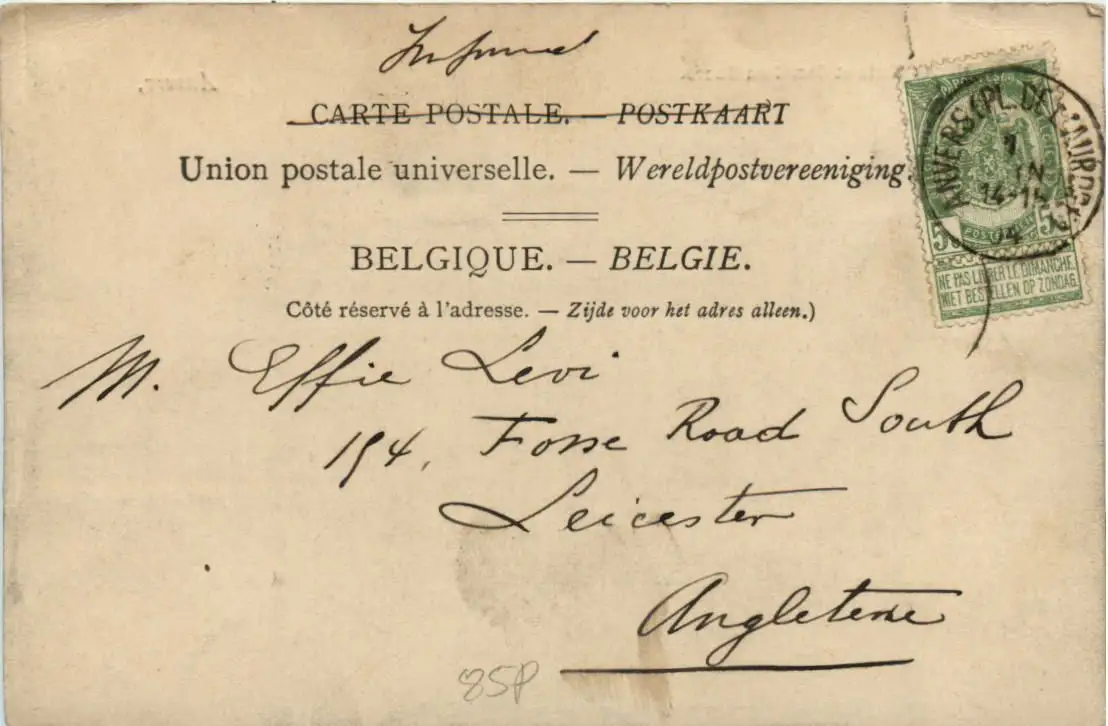 CARTE POSTALE. — POSTKAART
Union postale universelle. — Wereldpostvereeniging.
BELGIQUE. — BELGIE.
Côté réservé à l'adresse. — Zijde voor het adres alleen.)
ANVERS (PL. DE
1
14-15
04
5
5
NE PAS LIVRER LE DIMANCHE
NIET BESTELLEN OP ZONDAG
M. Effie Levi
194, Fosse Road South
Leicester
Angleterre
85P